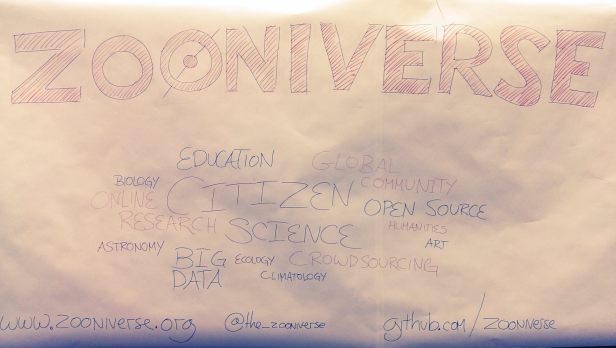 ZOONIVERSE
EDUCATION GLOBAL
BIOLOGY CITIZEN COMMUNITY
ONLINE OPEN SOURCE
RESEARCH SCIENCE HUMANITIES
ASTRONOMY ART
BIG ECOLOGY CROWDSOURCING
DATA CLIMATOLOGY
www.zooniverse.org @the_zooniverse github.com/zooniverse